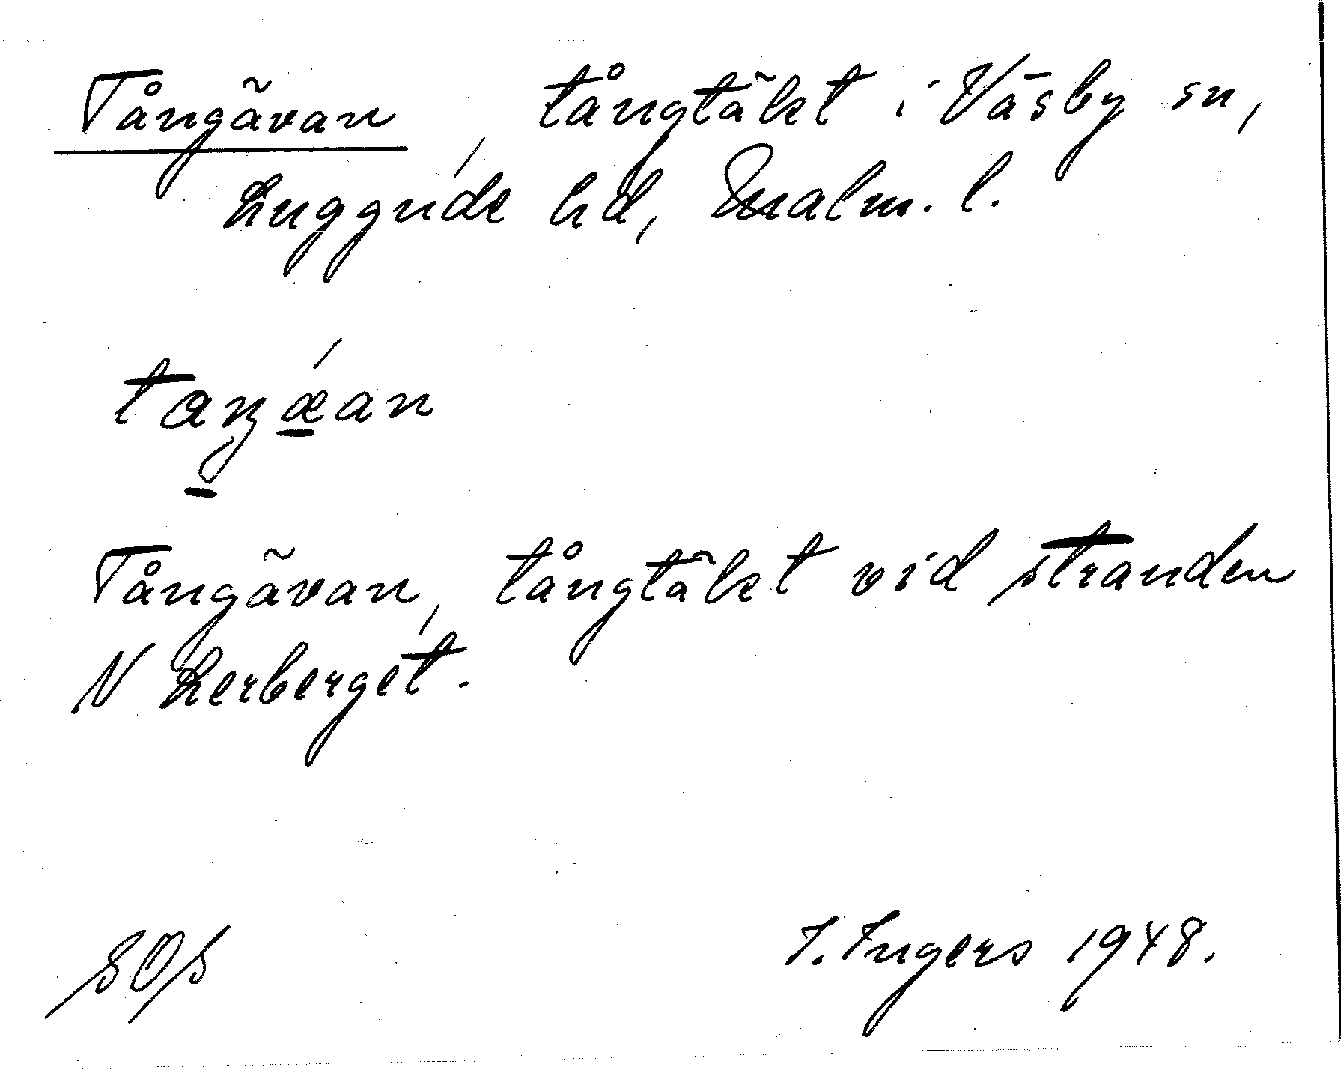 Tångävan, tångtäkt i Väsby sn,
Luggude hd, Malm. l.
taŋǽan
Tångävan, tångtäkt vid stranden
N Lerberget.
SOS I. Ingers 1948.